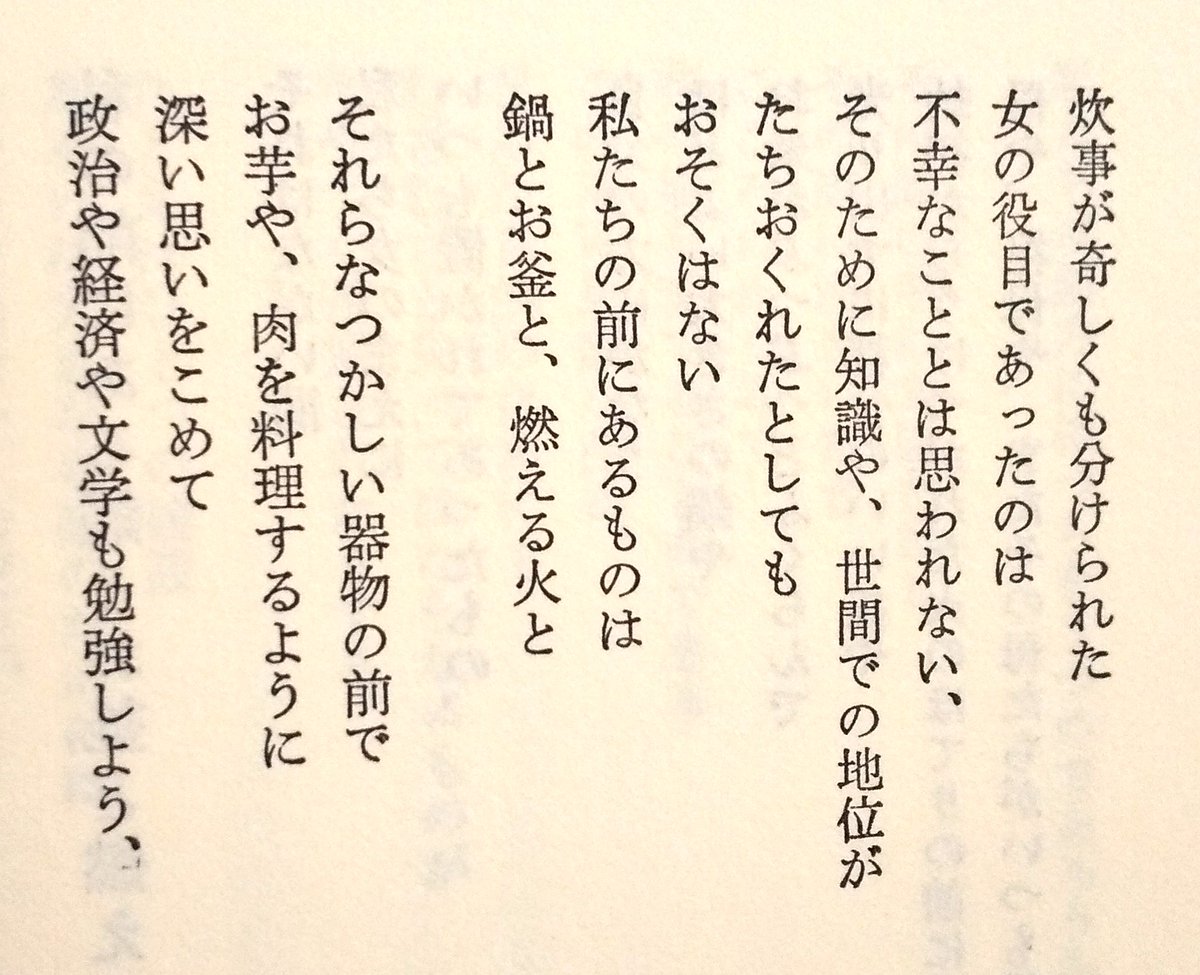 炊事が奇しくも分けられた
女の役目であったのは
不幸なこととは思われない、
そのために知識や、世間での地位が
たちおくれたとしても
おそくはない
私たちの前にあるものは
鍋とお釜と、燃える火と
それらなつかしい器物の前で
お芋や、肉を料理するように
深い思いをこめて
政治や経済や文学も勉強しよう、